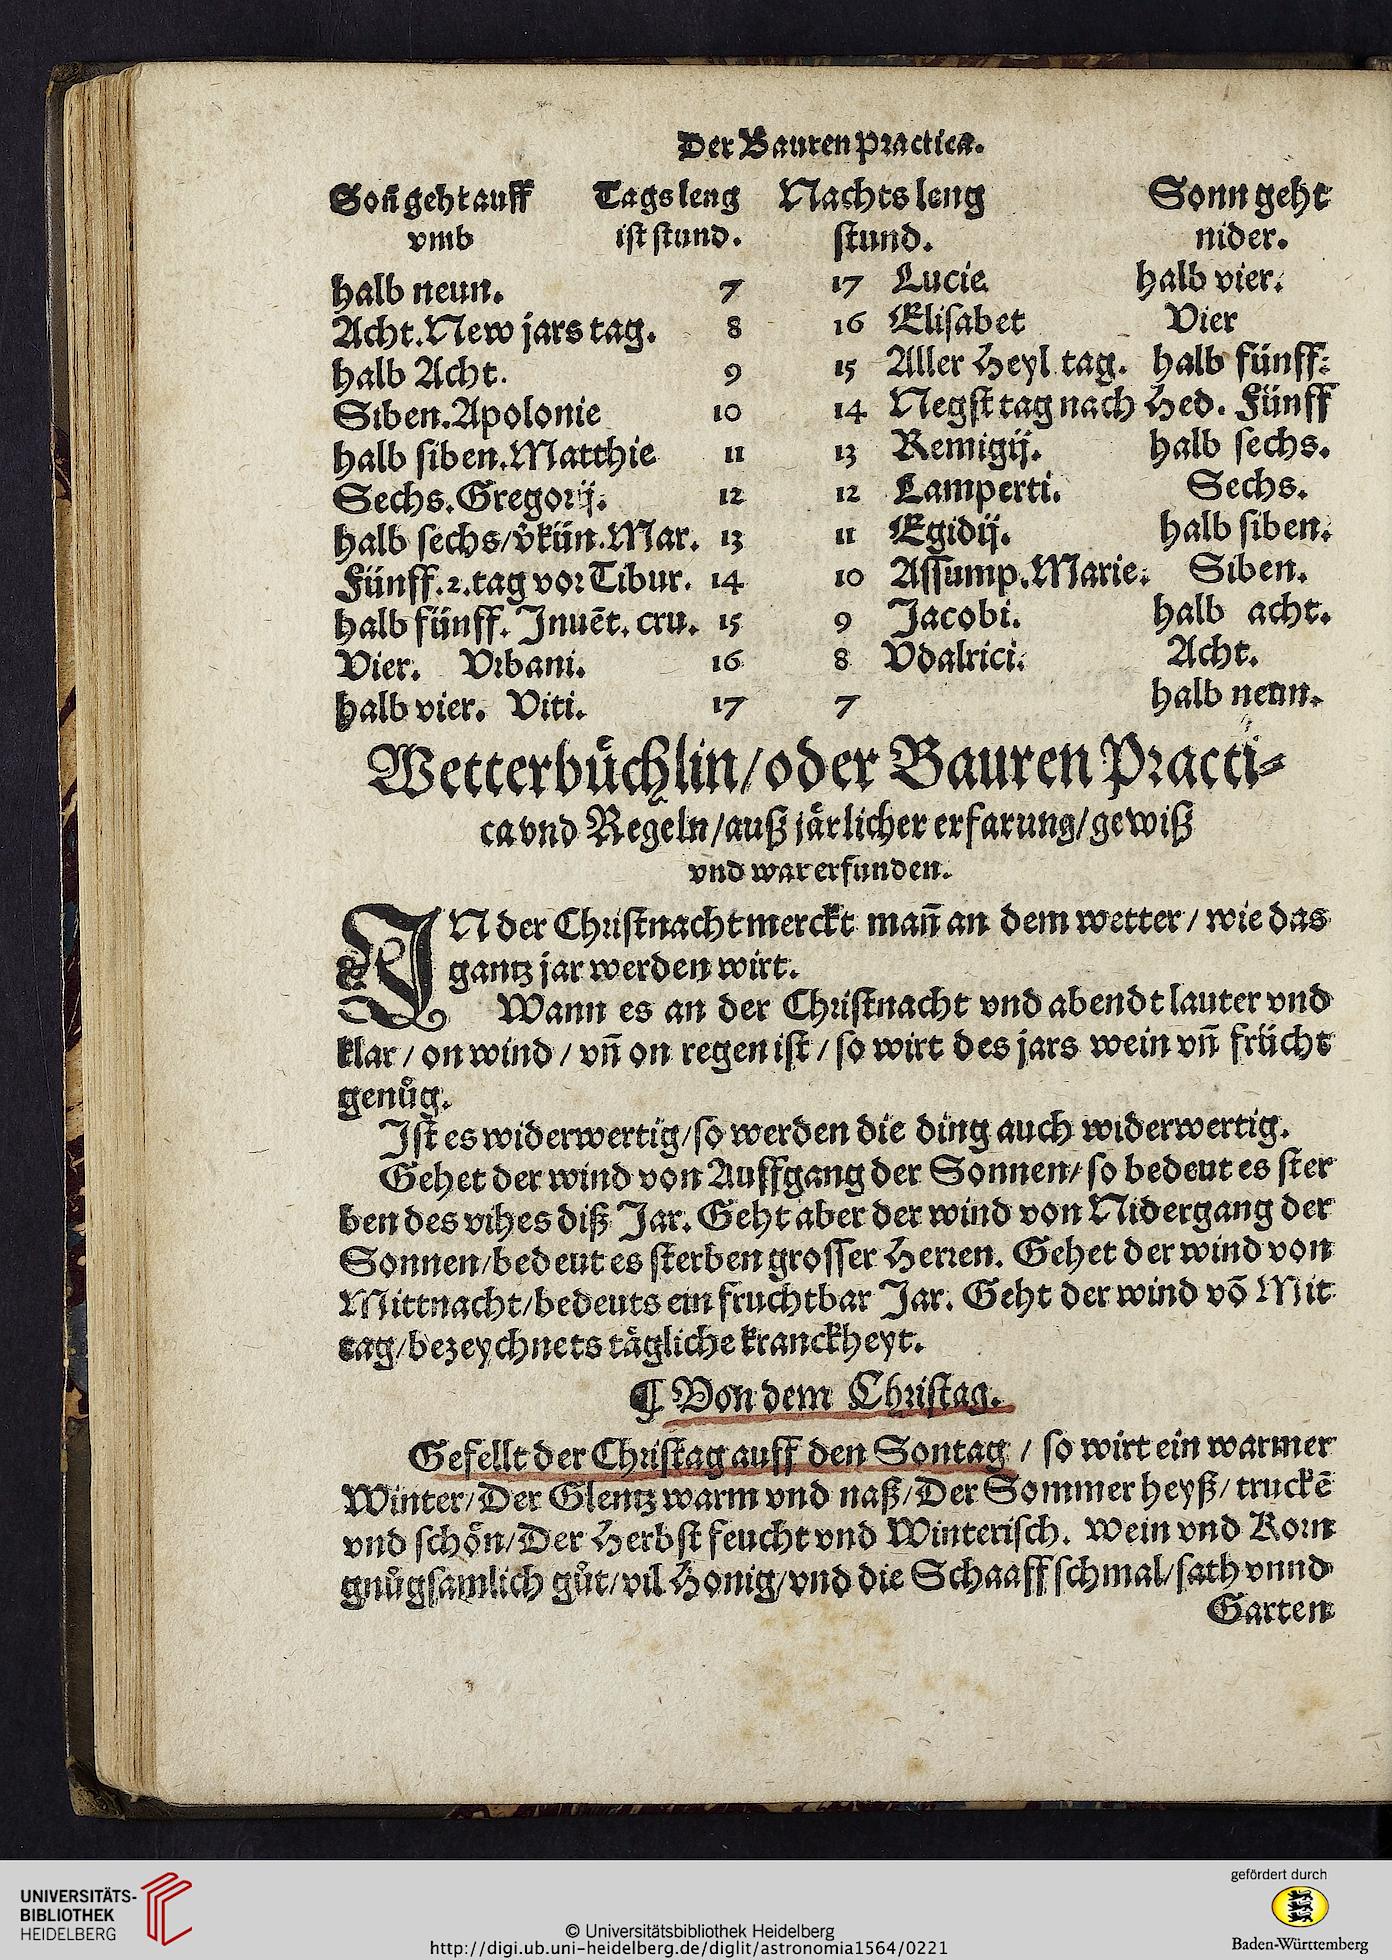 Der Bauren Practica.
Soñ geht auff Tags leng Nachts leng Sonn geht
vmb ist stund. stund. nider.
halb neun. 7 17 Lucie halb vier.
Acht. New jars tag. 8 16 Elisabet Vier
halb Acht. 9 15 Aller Heyl. tag. halb fünff.
Siben. Apolonie 10 14 Negst tag nach Hed. Fünff
halb siben. Matthie 11 13 Remigij. halb sechs.
Sechs. Gregorij. 12 12 Lamperti. Sechs.
halb sechs/v̊kün. Mar. 13 11 Egidij. halb siben.
Fünff. 2. tag vor Tibur. 14 10 Assump. Marie. Siben.
halb fünff. Inuēt. cru. 15 9 Jacobi. halb acht.
Vier. Vrbani. 16 8 Vdalrici. Acht.
halb vier. Viti. 17 7 halb neun.
Wetterbuͤchlin/oder Bauren Practi-
ca vnd Regeln/auß jaͤrlicher erfarung/gewiß
vnd war erfunden.
IN der Christnacht merckt mañ an dem wetter/ wie das
gantz jar werden wirt.
Wann es an der Christnacht vnd abendt lauter vnd
klar/ on wind/ vñ on regen ist/ so wirt des jars wein vñ frücht
genuͦg.
Ist es widerwertig/so werden die ding auch widerwertig.
Gehet der wind von Auffgang der Sonnen/ so bedeut es ster
ben des vihes diß Jar. Geht aber der wind von Nidergang der
Sonnen/bedeut es sterben grosser Herren. Gehet der wind von
Mittnacht/bedeuts ein fruchtbar Jar. Geht der wind vō Mit
tag/bezeychnets taͤgliche kranckheyt.
¶ Von dem Christag.
Gefellt der Christag auff den Sontag/ so wirt ein warmer
Winter/Der Glentz warm vnd naß/Der Sommer heyß/ truckē
vnd schoͤn/Der Herbst feucht vnd Winterisch. Wein vnd Korn
gnuͦgsamlich guͦt/vil Honig/vnd die Schaaff schmal/sath vnnd
Garten
UNIVERSITÄTS-
BIBLIOTHEK
HEIDELBERG
© Universitätsbibliothek Heidelberg
http://digi.ub.uni-heidelberg.de/diglit/astronomia1564/0221
gefördert durch
Baden-Württemberg